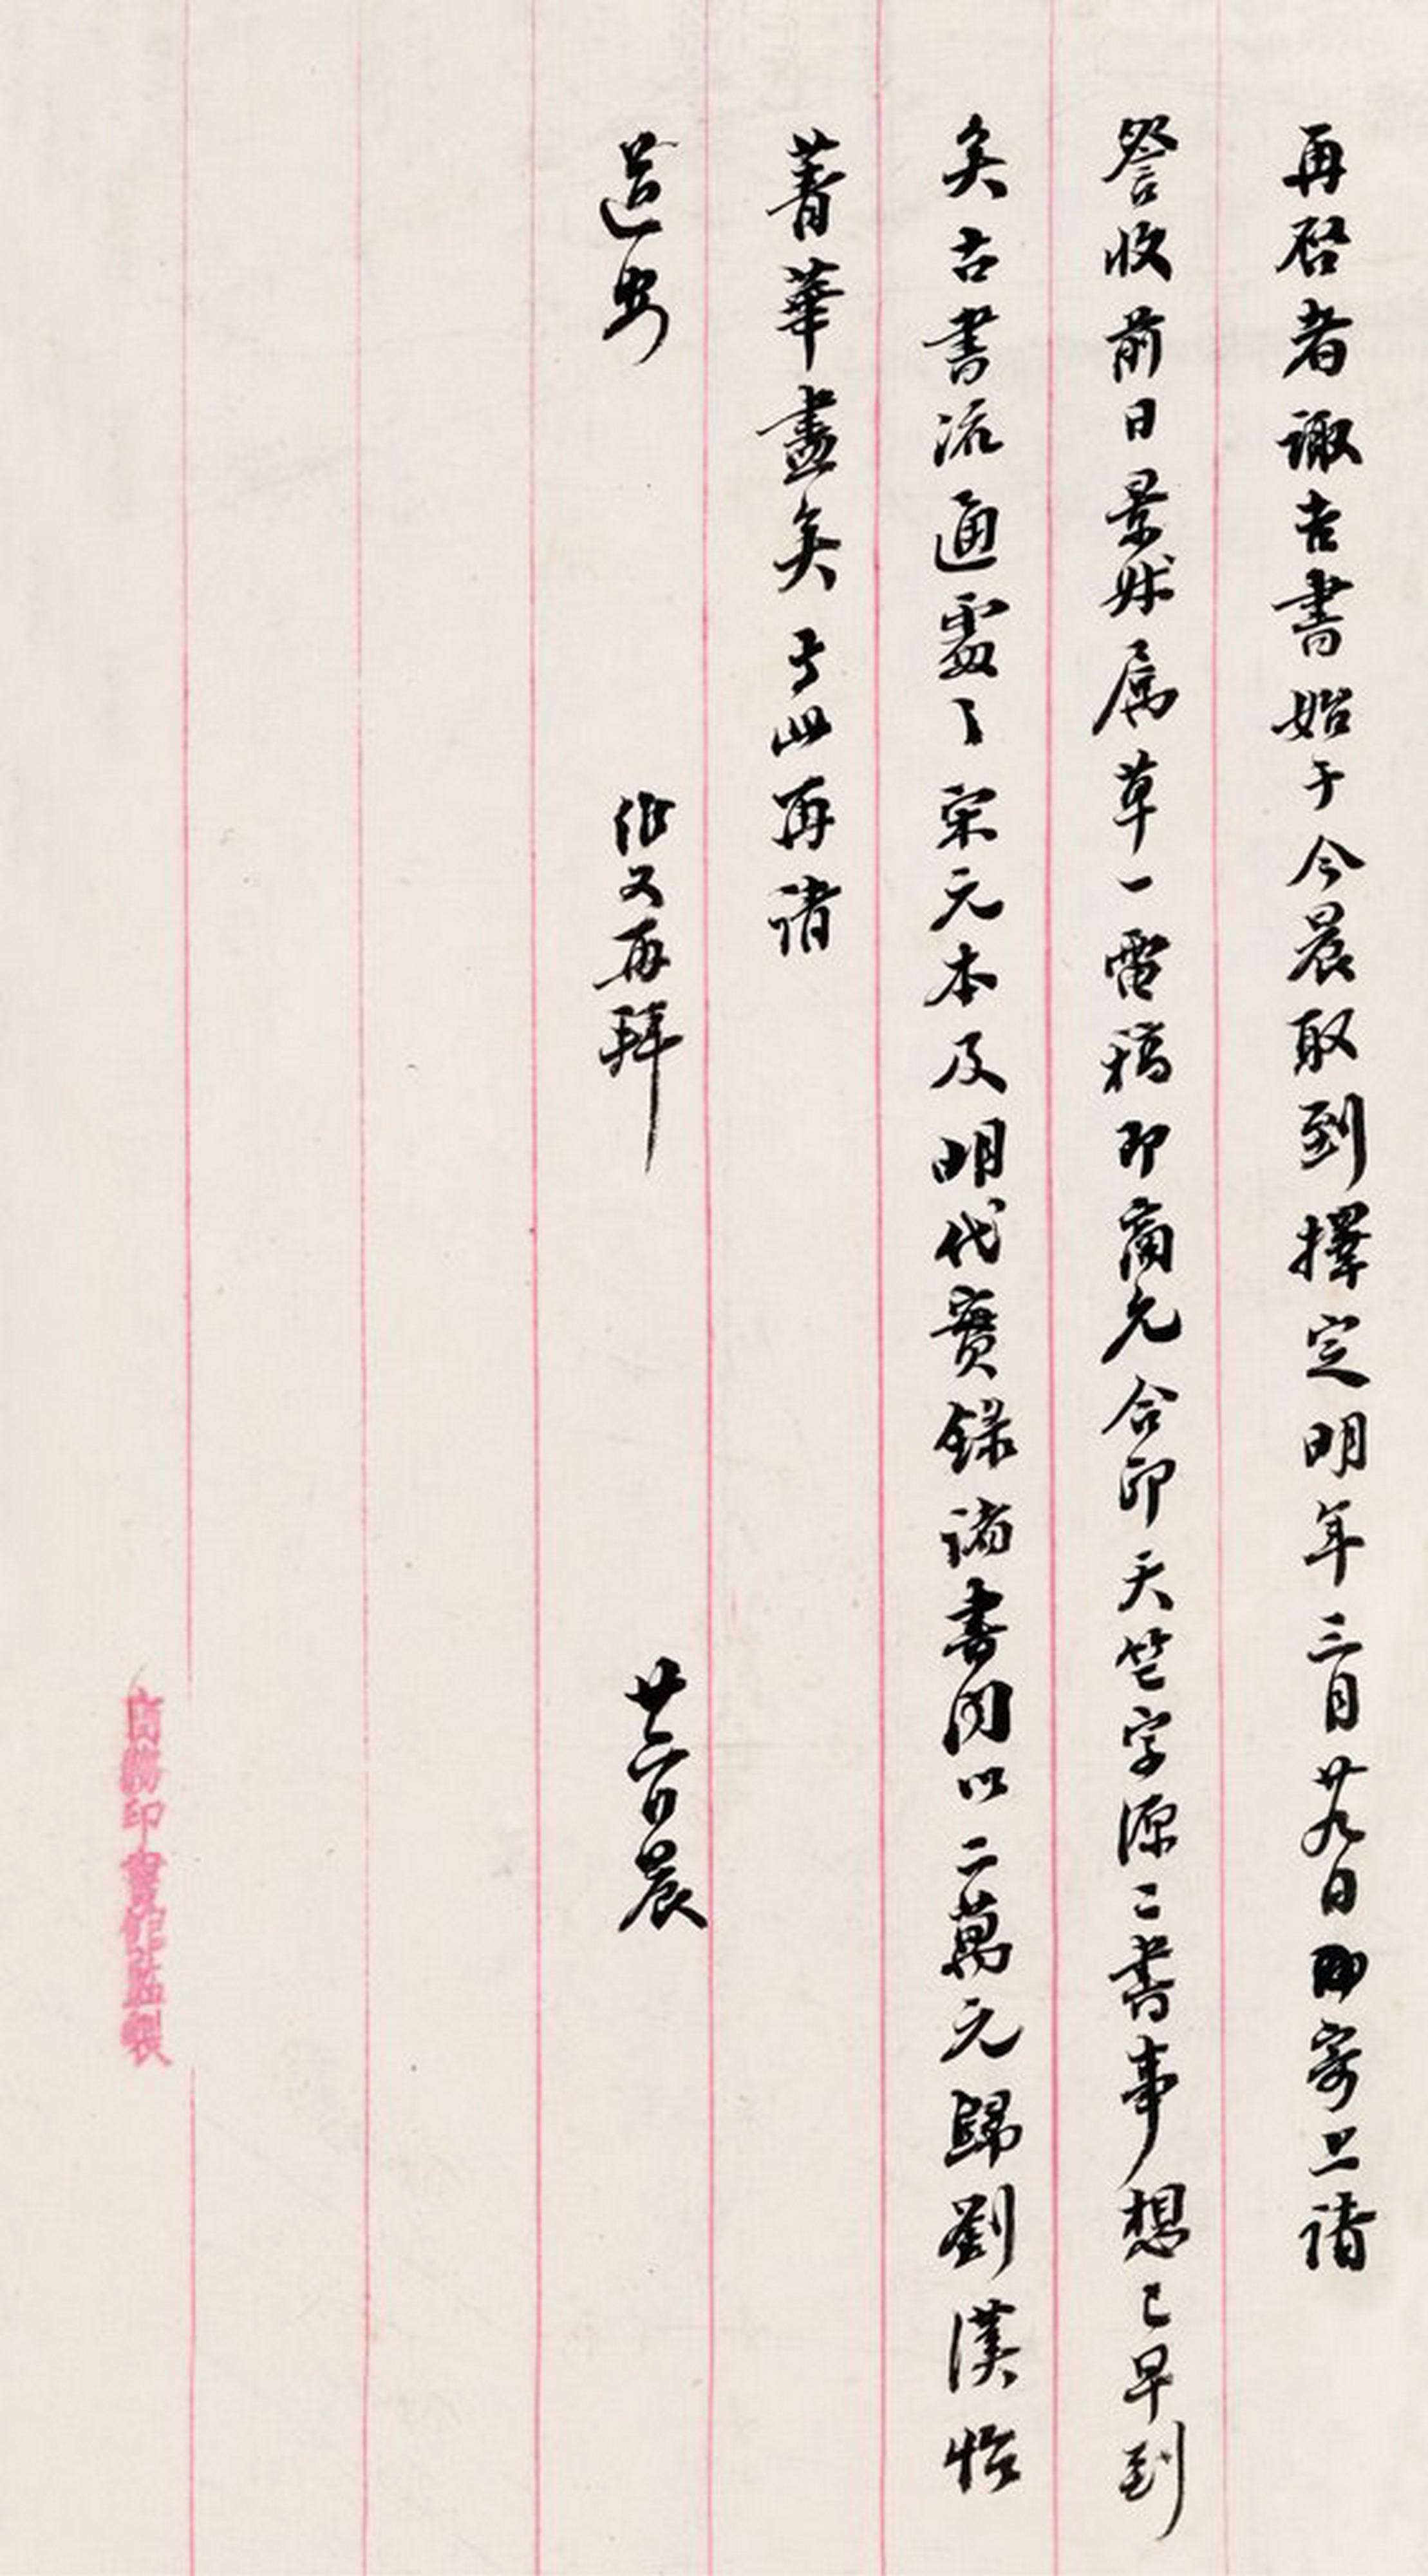 再啓者諏吉書始于今晨取到擇定明年三月廿九日即寄上請
詧收前日景叔属草一電稿印商允合印天竺字源二書事想已早到
矣古書流通處之宋元本及明代實錄諸書聞以二萬元歸劉漢怡
菁華盡矣專此再請
道安
維又再拜
廿六日晨
商務印書館監製